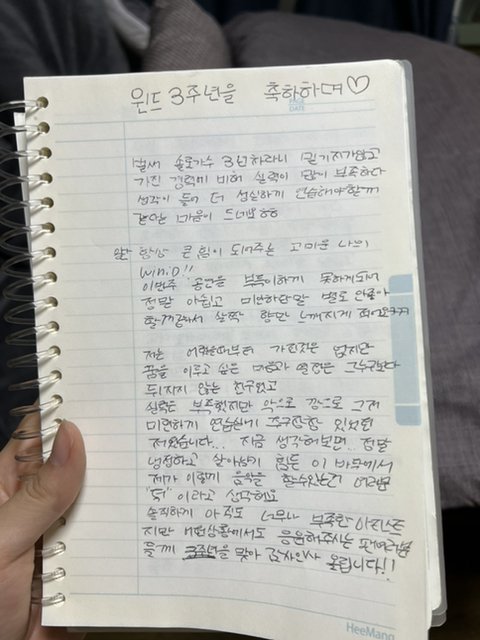 윈드 3주년을 축하하며♡
DATE
벌써 솔로가수 3년차라니 믿기지가않고
가진 경력에 비해 실력이 많이 부족하다
생각이 들어 더 성실하게 연습해야할꺼
같다는 마음이 드네요ㅎㅎ
항상 큰 힘이 되어주는 고마운 나의
WIN.D!!
이번주 공연을 부득이하게 못하게되어
정말 아쉽고 미안하단말
살짝 느껴지게
저는 어렸을때부터 가진것은 없지만
꿈을 이루고 싶은 마음과 열정은 그누구보다
뒤지지 않는 친구였고
실력은 부족했지만 악으로 깡으로 그저
미련하게 연습실에 있었던
저였습니다... 지금 생각해보면.. 정말
냉정하고 살아남기 힘든 이 바닥에서
제가 이렇게 음악을 할수있는건 여러분
"덕" 이라고 생각해요
솔직하게 아직도 너무나 부족한 아티스트
지만 어떤상황에서도 응원해주시는 팬여러분
들께 3주년을 맞아 감사인사 올립니다!!
HeeMang